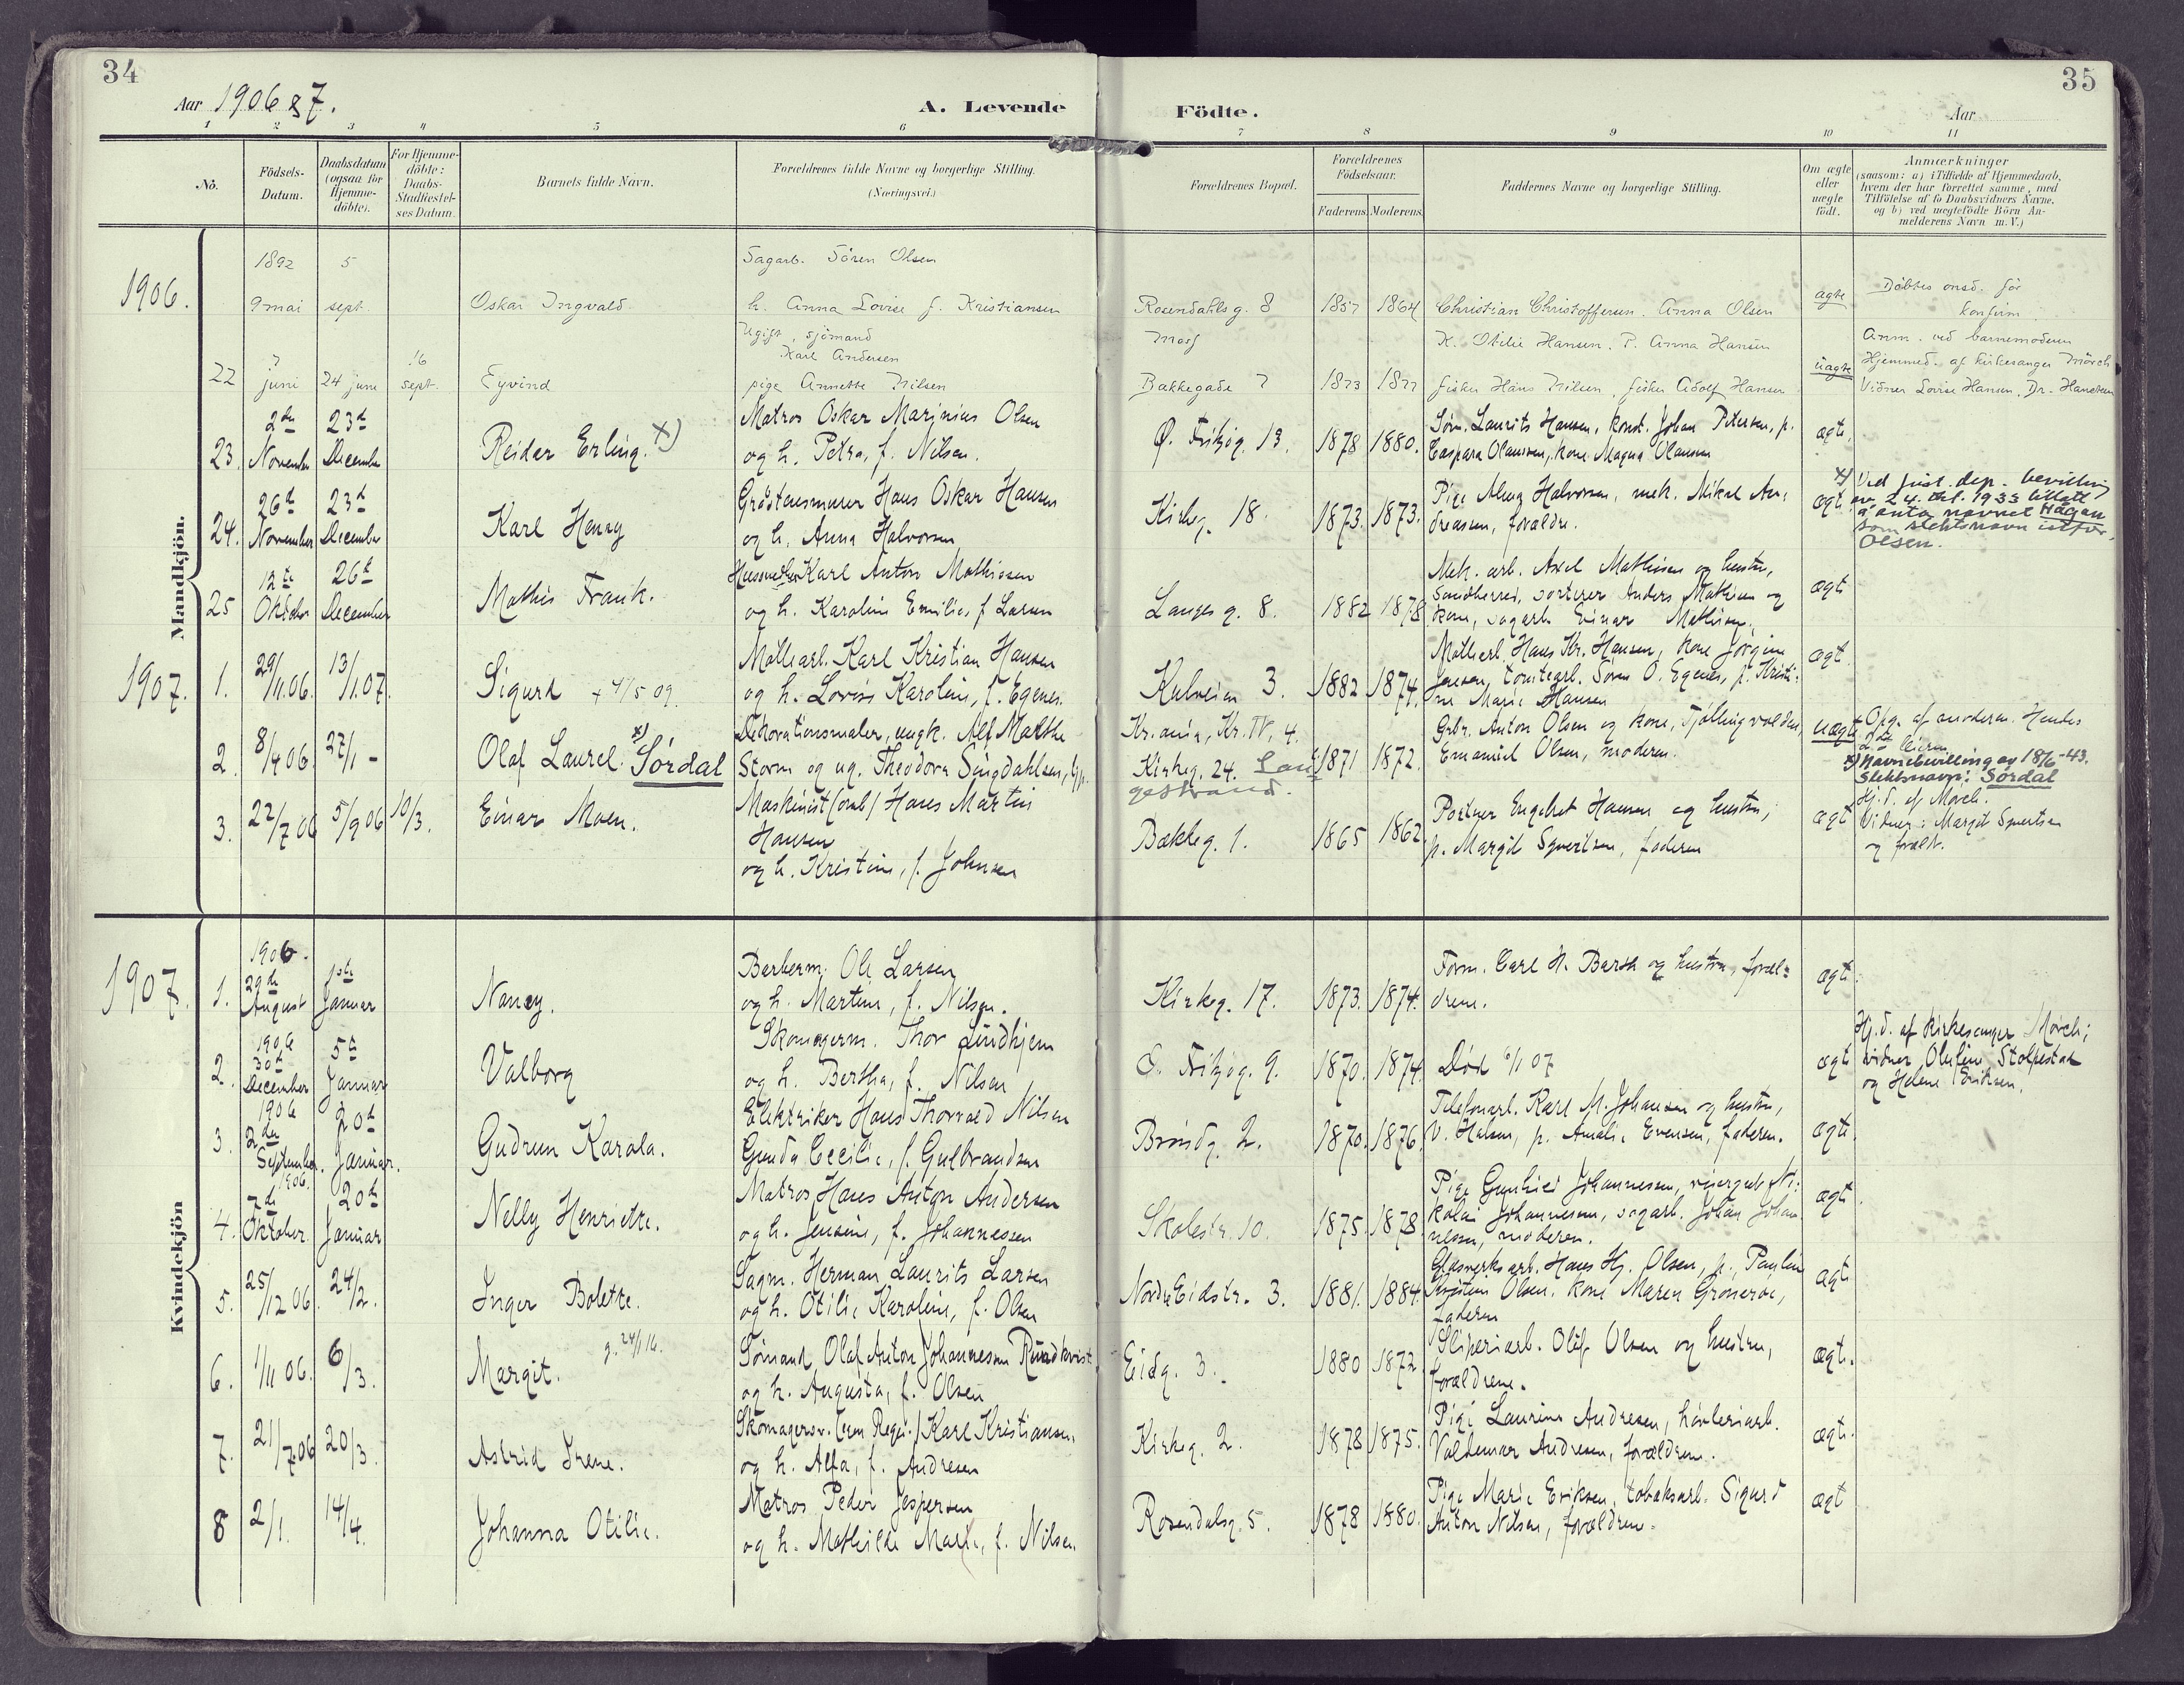 34
35
Aar 1906 & 7.
A. Levende
Födte.
Aar
1 2 3 4 5 6 7 8 9 10 11
No.
Födsels-
Datum.
Daabsdatum
(ogsaa for
Hjemme-
döbte).
For Hjemme-
döbte:
Daabs-
Stadfæstel-
ses Datum.
Barnets fulde Navn.
Forældrenes fulde Navne og borgerlige Stilling.
(Næringsvei.)
Forældrenes Bopæl.
Forældrenes
Födselsaar.
Faderens.
Moderens.
Faddernes Navne og borgerlige Stilling.
Om ægte
eller
uægte
födt.
Anmærkninger
(saasom: a) i Tilfælde af Hjemmedaab,
hvem der har forrettet samme, med
Tilföielse af to Daabsvidners Navne,
og b) ved uægtefödte Börn An-
melderens Navn m. V.)
Mandkjön.
1906.
1892 5 Sagarb. Sören Olsen
9 mai sept. Oskar Ingvald h. Anna Lovise f. Kristiansen Rosendahlsg. 8 1857 1864 Christian Christoffersen. Anna Olsen ægte Döbtes onsd. för
konfirm.
Ugift, sjömand
Karl Andersen K. Otilie Hansen. P. Anna Hansen Anm. ved barnemoderen
22 7 juni 24 june 16 sept. Eyvind pige Annette Nilsen Bakkegade 7 1873 1877 fisker Hans Nilsen, fisker Adolf Hansen uægte Hjemmed. af kirkesanger Mörch
Vidner Lovise Hansen, Dr. Handsen
23. 2den November 23d December Reidar Erling. x) Matros Oskar Marinius Olsen
og h. Petra, f. Nilsen. Ø. Fritzög. 13. 1878 1880. Söm. Laurits Hansen, konst. Johan Petersen, p.
Caspara Olaussen, kone Magna Olaussen ægte.
24. 26d November 23d December Karl Henry Gråstensmurer Hans Oskar Hansen
og h. Anna Halvorsen Kirkeg. 18. 1873. 1873. Pige Alma Halvorsen, mek. Mikal An-
dreassen, forældre. ægt.
x) Ved just. dep. bevilling
av 24. okt. 1933 tillatt
å anta navnet Hagan
som slektsnavn istfor
Olsen.
25 12te Oktober 26d December Mathis Frank. Karl Anton Mathissen
og h. Karoline Emilie, f Larsen Langes g. 8. 1882 1878 Mek. arb. Axel Mathisen og hustru,
sorterer Anders Mathisen og
kone, sagarb. Einar Mathisen. ægte
1907. 1. 29/11.06. 13/1.07. Sigurd + 4/5 09. Mölliarb. Karl Kristian Hansen
og h. Lovise Karoline, f. Egenes. Kulveien 3. 1882 1874. Mölliarb. Hans Kr. Hansen, kone Jörgine
Jensen, tomtearb. Sören O. Egenes, p. Kristi-
ne Marie Hansen ægt.
2. 8/4 06. 27/1 - Olaf Laurel. x) Sördal Dekorationsmaler, ungk. Alf Malthe
Storm og ug. Theodora Singdahlsen, Kr.ania, Kr. IV, 4.
Kirkeg. 24. Lan-
gestrand. 1871 1872. Grbr. Anton Olsen og kone, Tjöllingvolden,
Emanuel Olsen, moderen. uægte Opg. af moderen. Hendes
2det leierm.
x) Navnebevilling av 18/6-43.
Slektsnavn: Sördal
3. 22/7 06 5/9 06 10/3. Einar Moen. Maskinist (omb) Hans Martin
Hansen
og h. Kristine, f. Johnsen Bakkeg. 1. 1865 1862. Portner Engebret Hansen og hustru;
p. Margit Syvertsen, faderen ægt Hj.d. af Mörch.
Vidner: Margit Syvertsen
og forældr.
Kvindekjön
1907.
1. 1906. 29de August 1ste Januar Nancy. Barberm. Ole Larsen
og h. Martine, f. Nilsen. Kirkeg. 17. 1873. 1874. Form. Carl H. Barth og hustru, foræl-
drene. ægte.
2. 1906 30d December 5d Januar Valborg Skomagerm. Thor Lindhjem
og h. Bertha, f. Nilsen Ö. Fritzög. 9. 1870. 1874. Död 6/1 07 ægte Hj.d. af kirkesanger Mörch;
vidner, Oluline Stolpestad
og Helene Eriksen.
3. 1906 2den September. 20d Januar. Gudrun Karola. Elektriker Hans Thorvald Nilsen
Gunda Cecilie, f. Gulbrandsen Bröndg. 2. 1870. 1876. Telefonarb. Karl M. Johansen og hustru,
V. Halsen, p. Amalie Evensen, faderen. ægte.
4. 1906. 7d Oktober. 20d Januar Nelly Henriette. Matros Hans Anton Andersen
og h. Jensine, f. Johannessen Skolestr. 10. 1875. 1878. Pige Gunhild Johannessen, visergut Ni-
kolai Johannessen, sagarb. Johan Johan-
nessen, moderen. ægte.
5. 25/12 06. 24/2. Inger Bolette. Sagm. Herman Laurits Larsen
og h. Otilie Karoline, f. Olsen Nordre Eidstr. 3. 1881. 1884. Glasverksarb. Hans Hj. Olsen, p. Pauline
Kristine Olsen, kone Maren Gröneröe,
faderen ægte.
6. 1/11 06. 6/3. Margit. g. 24/1 16. Sömand Olaf Anton Johannessen Rundkvist
og h. Augusta, f. Olsen Eidg. 3. 1880 1872 Sliperiarb. Oluf Olsen og hustru,
forældrene. ægte.
7. 21/7.06 20/3. Astrid Irene. Skomagersv. Karl Kristiansen
og h. Alfa, f. Andresen Kirkeg. 2. 1878 1875. Pige Laurine Andresen, hövleriarb.
Valdemar Andresen, forældrene. ægte.
8 2/1. 14/4. Johanna Otilie. Matros Peder Jespersen
og h. Mathilde Marie, f. Nilsen. Rosendalsg. 5. 1878 1880. Pige Marie Eriksen, tobaksarb. Sigurd
Anton Nilsen, forældrene. ægte